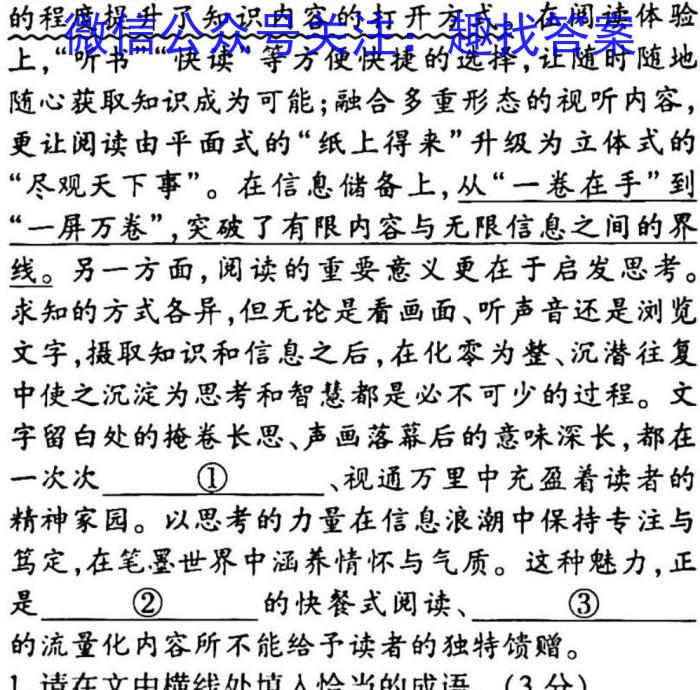 的程度提升了知识内容的打开方式。在阅读体验
微信公众号关注：趣找答案
上,“听书”“快读”等方便快捷的选择,让随时随地
随心获取知识成为可能;融合多重形态的视听内容,
更让阅读由平面式的“纸上得来”升级为立体式的
“尽观天下事”。在信息储备上,从“一卷在手”到
“一屏万卷”,突破了有限内容与无限信息之间的界
线。另一方面,阅读的重要意义更在于启发思考。
求知的方式各异,但无论是看画面、听声音还是浏览
文字,摄取知识和信息之后,在化零为整、沉潜往复
中使之沉淀为思考和智慧都是必不可少的过程。文
字留白处的掩卷长思、声画落幕后的意味深长,都在
一次次 ① 、视通万里中充盈着读者的
精神家园。以思考的力量在信息浪潮中保持专注与
笃定,在笔墨世界中涵养情怀与气质。这种魅力,正
是 ② 的快餐式阅读、 ③
的流量化内容所不能给予读者的独特馈赠。
1.请在文中横线处填入恰当的成语。(3分)